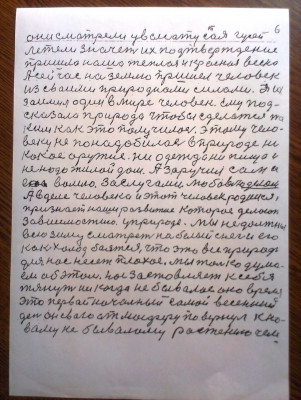 6
они смотрели увсмату стая гусей
летели значет их подтверждение
пришла наша теплая и красная весна
А сейчас на землю пришел человек
из своими природными силами. Эти
занимя один в мире человек. Ему под-
сказала природа чтобы сделатся та
ким как это получилос. Этому чело-
веку не понадобилас в природе ни
какое оружие. ни одежда ни пища и
не надо жилой дом. А Заручил сам а
волию. Заслугами любов
А в деле человека и этот человек родился,
признает наши развитие которое делают
Зависимостию. у природе. Мы не должны
всю зиму сматреть на белый снег и его
как холод боятся, что это все природа
для нас несет плохое. мы толко дума-
ем об этом. нас застовляет к себя
тянут ни когда не бывалое оно время
Это первый начанный самый весенний
ден он свого атмосферу повернул к но-
вому не бывалому растению чем